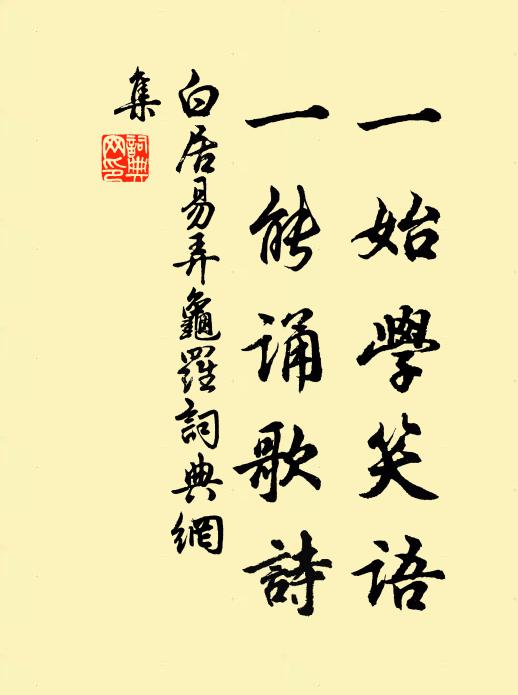 一始學笑语
一能诵歌詩
白居易弄龜羅詞典網
集
詞典
网印